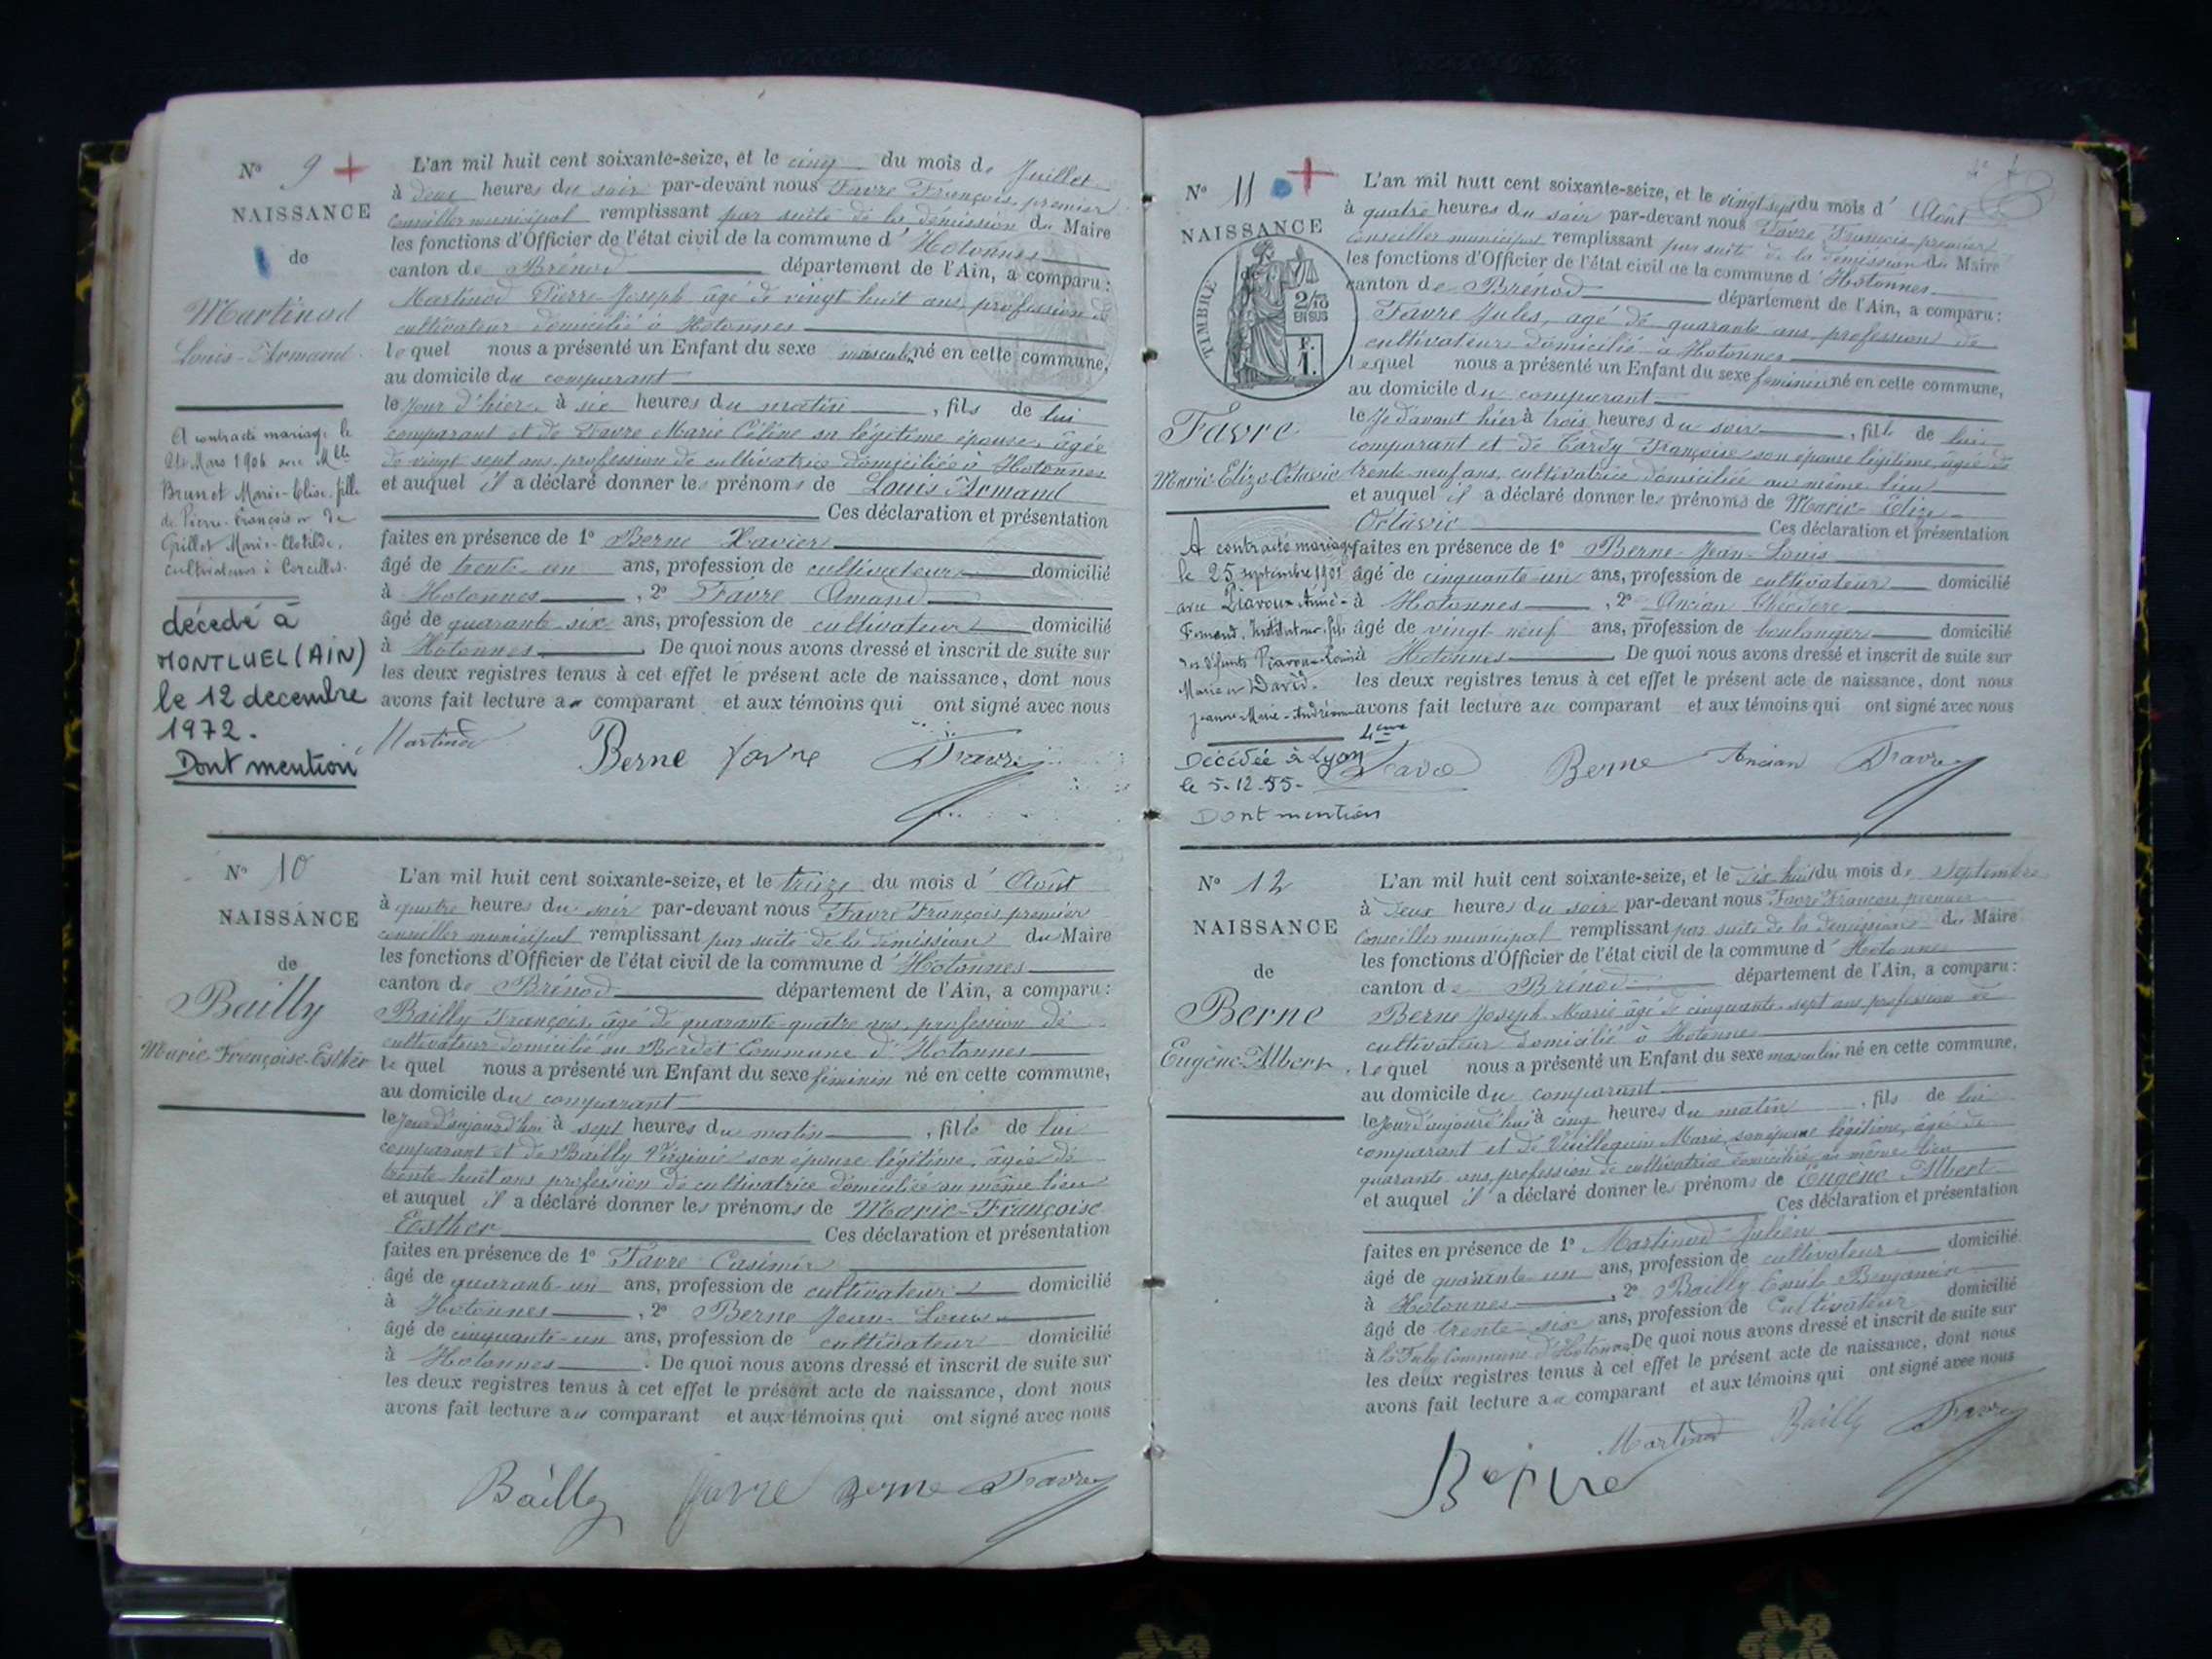 N° 9 +
NAISSANCE
de
Martinod
Louis-Armand
A contracté mariage le
Mars 1906 avec Mlle
Brunet Marie-Elise, fille
de Pierre-François et de
Grillet Marie-Clotilde,
cultivateurs à Corcelles.
décédé à
MONTLUEL (AIN)
le 12 decembre
1972.
Dont mention
L'an mil huit cent soixante-seize, et le cinq du mois de Juillet
à deux heures du soir par-devant nous Favre François, premier
conseiller municipal remplissant par suite de la démission du Maire
les fonctions d'Officier de l'état civil de la commune d'Hotonnes
canton de Brénod département de l'Ain, a comparu :
Martinod Pierre-Joseph âgé de vingt huit ans, profession de
cultivateur domicilié à Hotonnes
lequel nous a présenté un Enfant du sexe masculin né en cette commune,
au domicile du comparant
le jour d'hier à six heures du matin, fils de lui
comparant et de Favre Marie Céline sa légitime épouse, âgée
de vingt sept ans, profession de cultivatrice domiciliée à Hotonnes
et auquel il a déclaré donner les prénoms de Louis Armand
Ces déclaration et présentation
faites en présence de 1° Berne Xavier
âgé de trente un ans, profession de cultivateur domicilié
à Hotonnes, 2° Favre Amand
âgé de quarante six ans, profession de cultivateur domicilié
à Hotonnes. De quoi nous avons dressé et inscrit de suite sur
les deux registres tenus à cet effet le présent acte de naissance, dont nous
avons fait lecture au comparant et aux témoins qui ont signé avec nous
Martinod Berne favre Favre
N° 10
NAISSANCE
de
Bailly
Marie Françoise-Esther
L'an mil huit cent soixante-seize, et le treize du mois d'Août
à quatre heures du soir par-devant nous Favre François, premier
conseiller municipal remplissant par suite de la démission du Maire
les fonctions d'Officier de l'état civil de la commune d'Hotonnes
canton de Brénod département de l'Ain, a comparu :
Bailly François, âgé de quarante-quatre ans, profession de
cultivateur domicilié au Bordet Commune d'Hotonnes
le quel nous a présenté un Enfant du sexe féminin né en cette commune,
au domicile du comparant
le jour d'aujourd'hui à sept heures du matin, fille de lui
comparant et de Bailly Virginie son épouse légitime, âgée de
trente-huit ans profession de cultivatrice domiciliée au même lieu
et auquel il a déclaré donner les prénoms de Marie-Françoise
Eesther Ces déclaration et présentation
faites en présence de 1° Favre Casimir
âgé de quarante-un ans, profession de cultivateur domicilié
à Hotonnes, 2° Berne Jean-Louis
âgé de cinquante-un ans, profession de cultivateur domicilié
à Hotonnes. De quoi nous avons dressé et inscrit de suite sur
les deux registres tenus à cet effet le présent acte de naissance, dont nous
avons fait lecture au comparant et aux témoins qui ont signé avec nous
Bailly favre Berne Favre
N° 11 +
NAISSANCE
de
TIMBRE
2/10
EN SUS
F.
1.
Favre
Marie Elize Octavie
A contracté mariage
le 25 septembre 1901
avec Piavoux Aimé-
Fernand, Instituteur, fils
des défunts Piavoux Louis
Marie et David
Jeanne-Marie-Andréanne
4eme
Décédée à Lyon
le 5-12-55-
Dont mention
L'an mil huit cent soixante-seize, et le vingt sept du mois d'Août
à quatre heures du soir par-devant nous Favre François premier
conseiller municipal remplissant par suite de la démission du Maire
les fonctions d'Officier de l'état civil de la commune d'Hotonnes
canton de Brénod département de l'Ain, a comparu :
Favre Jules, agé de quarante ans, profession de
cultivateur domicilié à Hotonnes
lequel nous a présenté un Enfant du sexe féminin né en cette commune,
au domicile du comparant
le d'avant hier à trois heures du soir, fille de lui
comparant et de Cardy Françoise son épouse légitime, âgée de
trente neuf ans, cultivatrice domiciliée au même lieu
et auquel il a déclaré donner les prénoms de Marie-Elize
Octavie Ces déclaration et présentation
faites en présence de 1° Berne-Jean-Louis
âgé de cinquante un ans, profession de cultivateur domicilié
à Hotonnes, 2° Ancian Théodore
âgé de vingt neuf ans, profession de boulanger domicilié
à Hotonnes. De quoi nous avons dressé et inscrit de suite sur
les deux registres tenus à cet effet le présent acte de naissance, dont nous
avons fait lecture au comparant et aux témoins qui ont signé avec nous
Favre Berne Ancian Favre
N° 12
NAISSANCE
de
Berne
Eugène-Albert
L'an mil huit cent soixante-seize, et le dix huit du mois de Septembre
à deux heures du soir par-devant nous Favre François premier
Conseiller municipal remplissant par suite de la démission du Maire
les fonctions d'Officier de l'état civil de la commune d'Hotonnes
canton de Brénod département de l'Ain, a comparu :
Berne Joseph Marie âgé de cinquante-sept ans profession de
cultivateur domicilié à Hotonnes
lequel nous a présenté un Enfant du sexe masculin né en cette commune,
au domicile du comparant
le jour d'aujourd'hui à cinq heures du matin, fils de lui
comparant et de Vuillequin Marie, son épouse légitime, âgée de
quarante ans, profession de cultivatrice domiciliée au même lieu
et auquel il a déclaré donner les prénoms de Eugène Albert
Ces déclaration et présentation
faites en présence de 1° Martinod Julien
âgé de quarante un ans, profession de cultivateur domicilié
à Hotonnes, 2° Bailly Emile Benjamin
âgé de trente six ans, profession de Cultivateur domicilié
à Commune d'Hotonnes De quoi nous avons dressé et inscrit de suite sur
les deux registres tenus à cet effet le présent acte de naissance, dont nous
avons fait lecture au comparant et aux témoins qui ont signé avec nous
Berne Martinod Bailly Favre